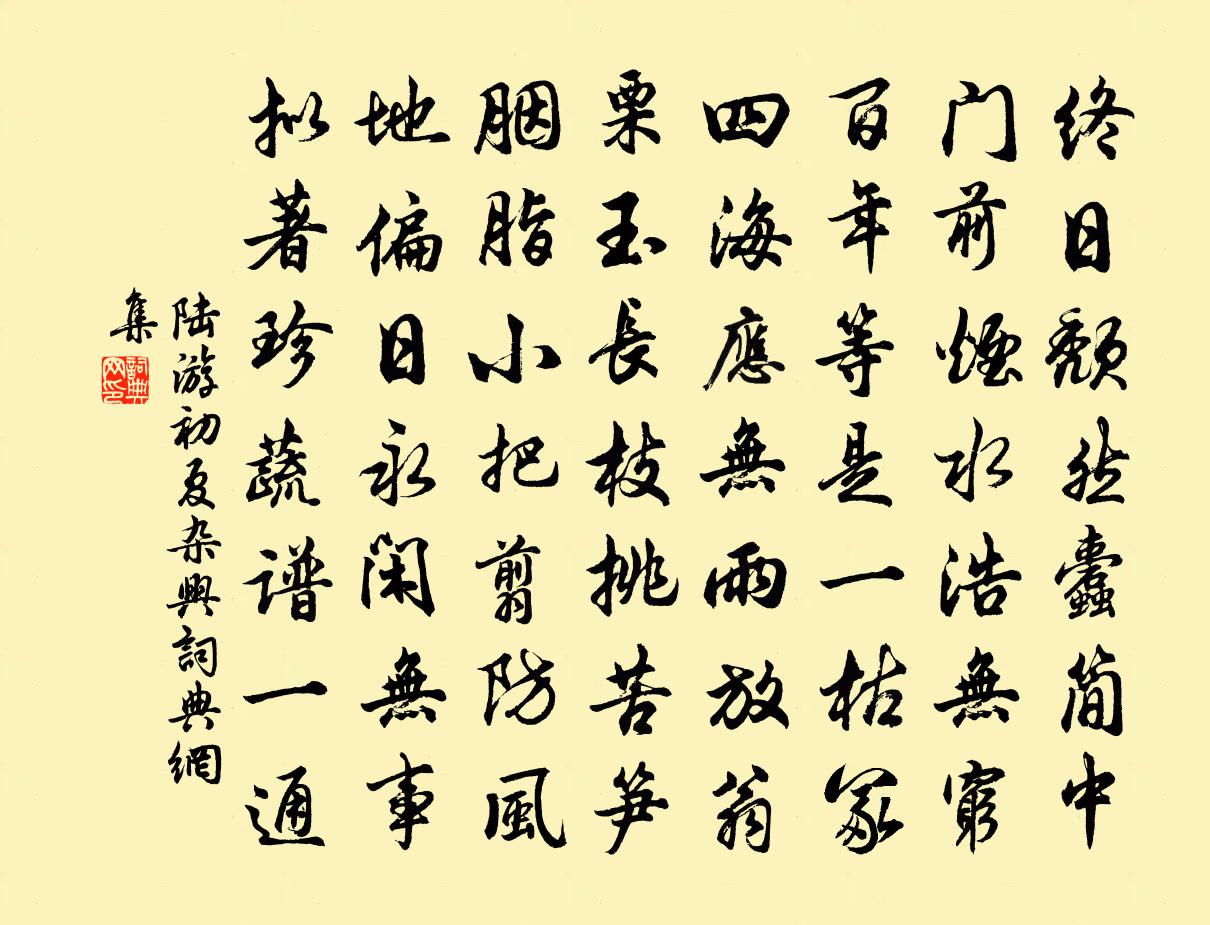 终日颓然蠹简中
门前烟水浩無窮
百年等是一枯冢
四海應無兩放翁
栗玉長枝挑苦笋
胭脂小把翦防風
地偏日永閑無事
拟著珍蔬谱一通
陆游初夏杂興詞典網
集
詞典
网印